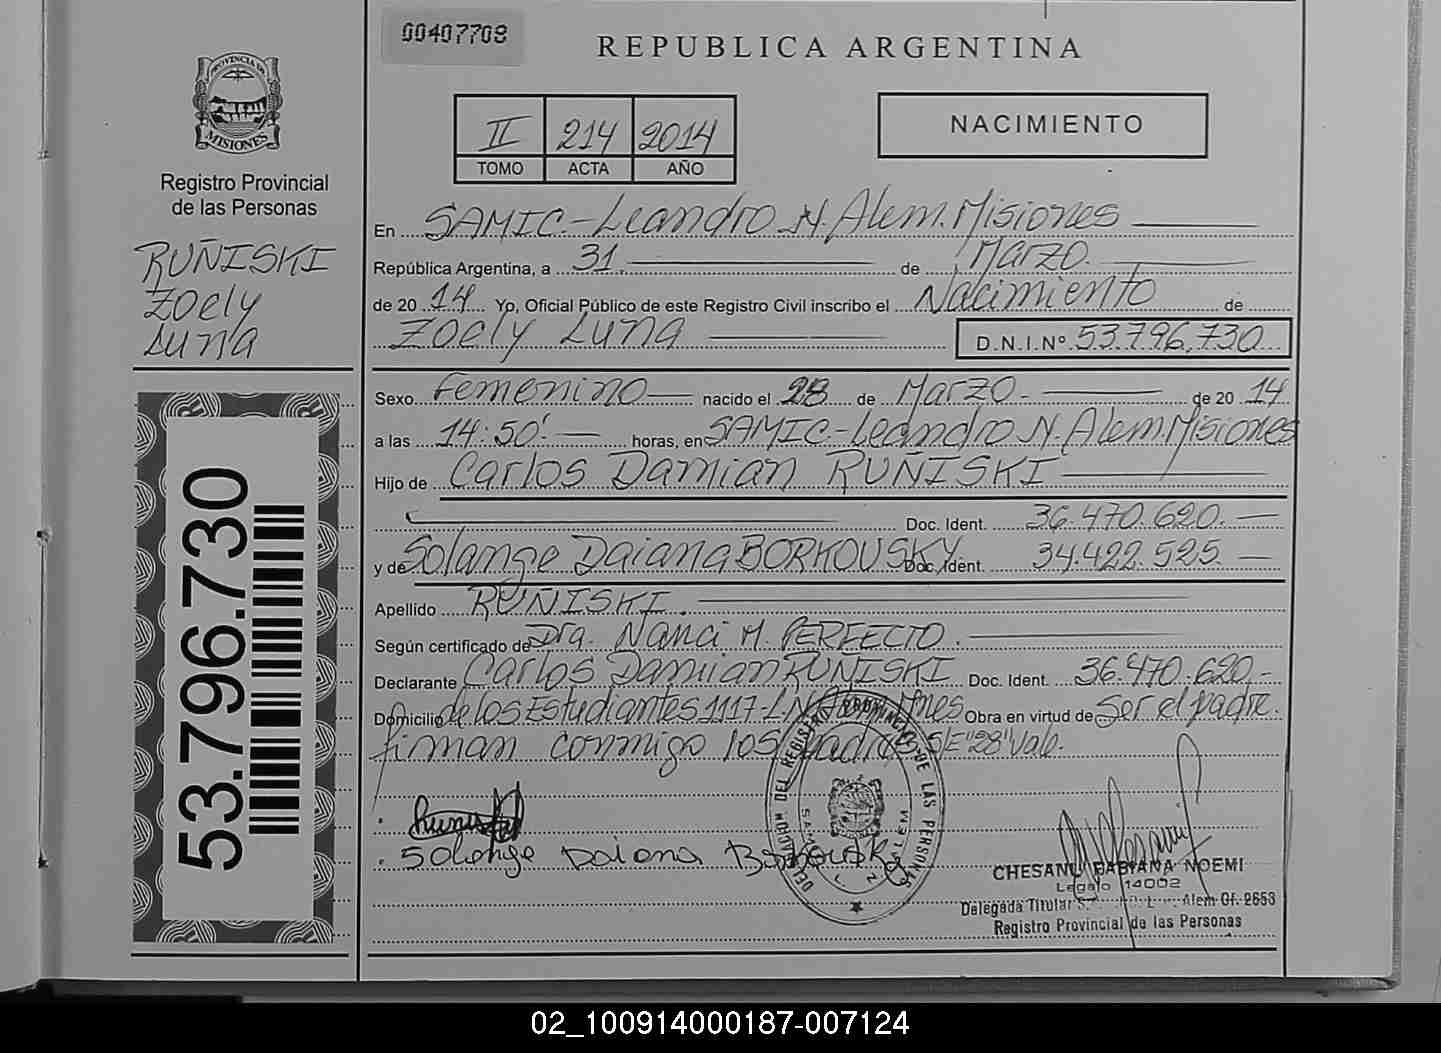 00407708
REPUBLICA ARGENTINA
PROVINCIA DE
MISIONES
Registro Provincial
de las Personas
RUÑISKI
Zoely
Luna
II 214 2014
TOMO ACTA AÑO
NACIMIENTO
En SAMIC.-Leandro N. Alem. Misiones
República Argentina, a 31. de Marzo.
de 20 14 Yo, Oficial Público de este Registro Civil inscribo el Nacimiento de
Zoely Luna D.N.I.Nº 53.796.730
Sexo Femenino nacido el 28 de Marzo.- de 20 14
a las 14:50'.- horas, en SAMIC.-Leandro N. Alem. Misiones
Hijo de Carlos Damian RUÑISKI
Doc. Ident. 36.470.620.-
y de Solange Daiana BORKOUSKY Doc. Ident. 34.422.525.-
Apellido RUÑISKI.
Según certificado de Dra. Nanci M. PERFECTO.
Declarante Carlos Damian RUÑISKI Doc. Ident. 36.470.620.-
Domicilio de los Estudiantes 1117-L.N.Alem Mnes Obra en virtud de Ser el padre.
firman conmigo los padres S/E "28" Vale.
53.796.730
DELEGACION DEL REGISTRO PROVINCIAL DE LAS PERSONAS
Solange Daiana
CHESANI FABIANA NOEMI
Legajo 14002
Delegada Titular Alem Of. 2653
Registro Provincial de las Personas
02_100914000187-007124